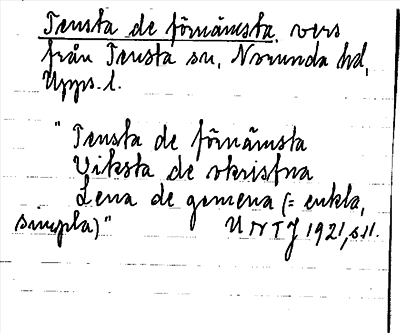 Tensta de förnämsta, vers
från Tensta sn, Norunda hd,
Upps. l.
"Tensta de förnämsta
Viksta de okristna
Lena de gemena (= enkla,
simpla)" UNT J 1921, s. 11.